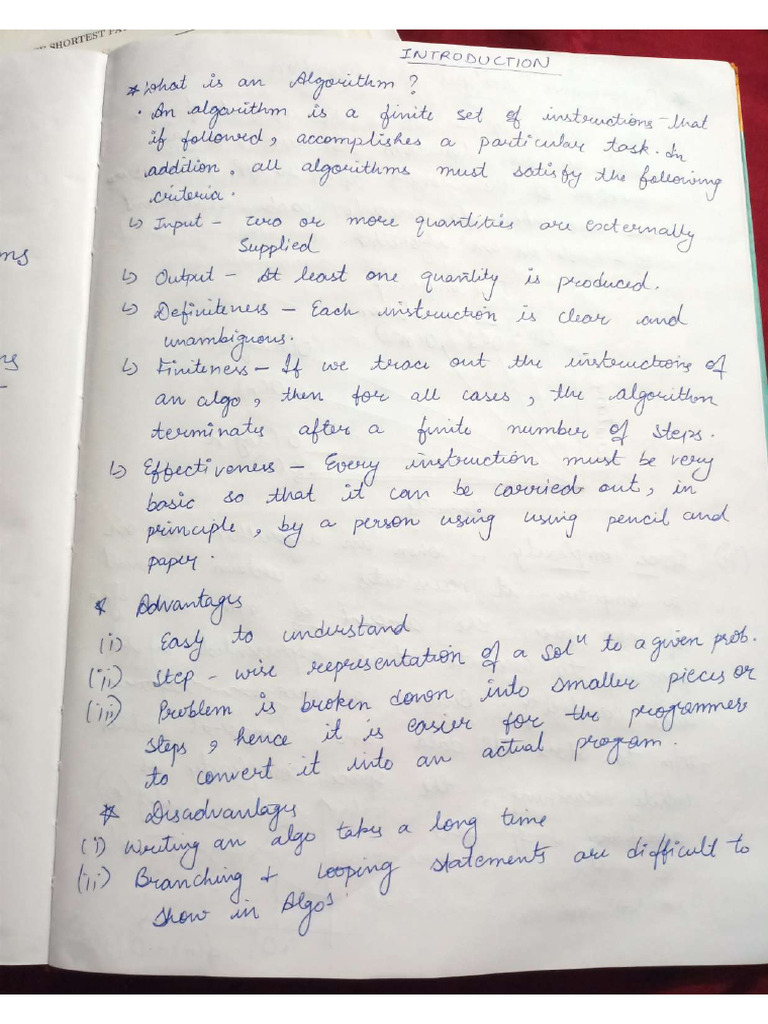 SHORTEST
INTRODUCTION
* What is an Algorithm ?
· An algorithm is a finite set of instructions that
if followed, accomplishes a particular task. In
addition, all algorithms must satisfy the following
criteria.
↳ Input – zero or more quantities are externally
Supplied
↳ Output – At least one quantity is produced.
↳ Definiteness – Each instruction is clear and
unambiguous.
↳ Finiteness – If we trace out the instructions of
an algo, then for all cases, the algorithm
terminates after a finite number of steps.
↳ Effectiveness – Every instruction must be very
basic so that it can be carried out, in
principle, by a person using using pencil and
paper.
* Advantages
(i) Easy to understand
(ii) Step-wise representation of a solⁿ to a given prob.
(iii) Problem is broken down into smaller pieces or
steps, hence it is easier for the programmer
to convert it into an actual program.
* Disadvantages
(i) Writing an algo takes a long time
(ii) Branching & Looping statements are difficult to
show in Algos.